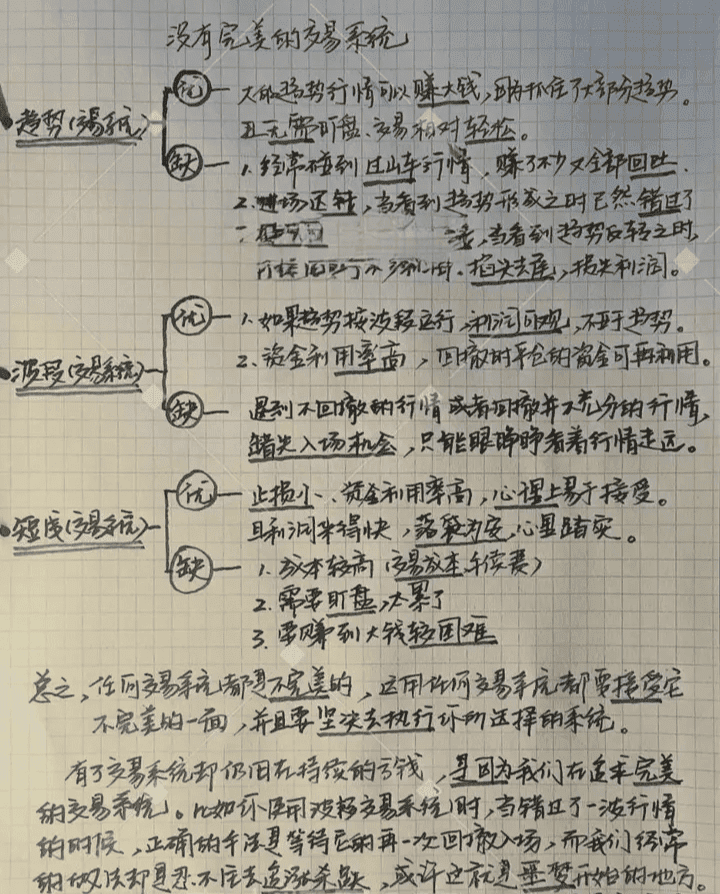 没有完美的交易系统
趋势(交易系统)
优 大的趋势行情可以赚大钱,因为抓住了大部分趋势。
且无需盯盘、交易相对轻松。
缺 1.经常碰到过山车行情,赚了不少又全部回吐.
2.进场还转,当看到趋势形成之时已然错过了
当看到趋势反转之时,
掐头去尾,损失利润。
波段(交易系统)
优 1.如果趋势按波段运行,利润可观,不亚于趋势。
2、资金利用率高,回撤时平仓的资金可再利用。
缺 遇到不回撤的行情或者回撤并不充分的行情,
错失入场机会,只能眼睁睁看着行情走远。
短线(交易系统)
优 止损小、资金利用率高,心理上易于接受。
且利润来得快,落袋为安,心里踏实。
缺 1.成本较高(交易成本,手续费)
2.需要盯盘,太累了
3.要赚到大钱较困难
总之,任何交易系统都是不完美的,运用任何交易系统都要接受它
不完美的一面,并且要坚决去执行你所选择的系统。
有了交易系统却仍旧在持续的亏钱,是因为我们在追求完美
的交易系统。比如你使用波段交易系统时,当错过了一波行情
的时候,正确的手法是等待它的再一次回撤入场,而我们经常
的做法却是忍不住去追涨杀跌,或许这就是噩梦开始的地方。